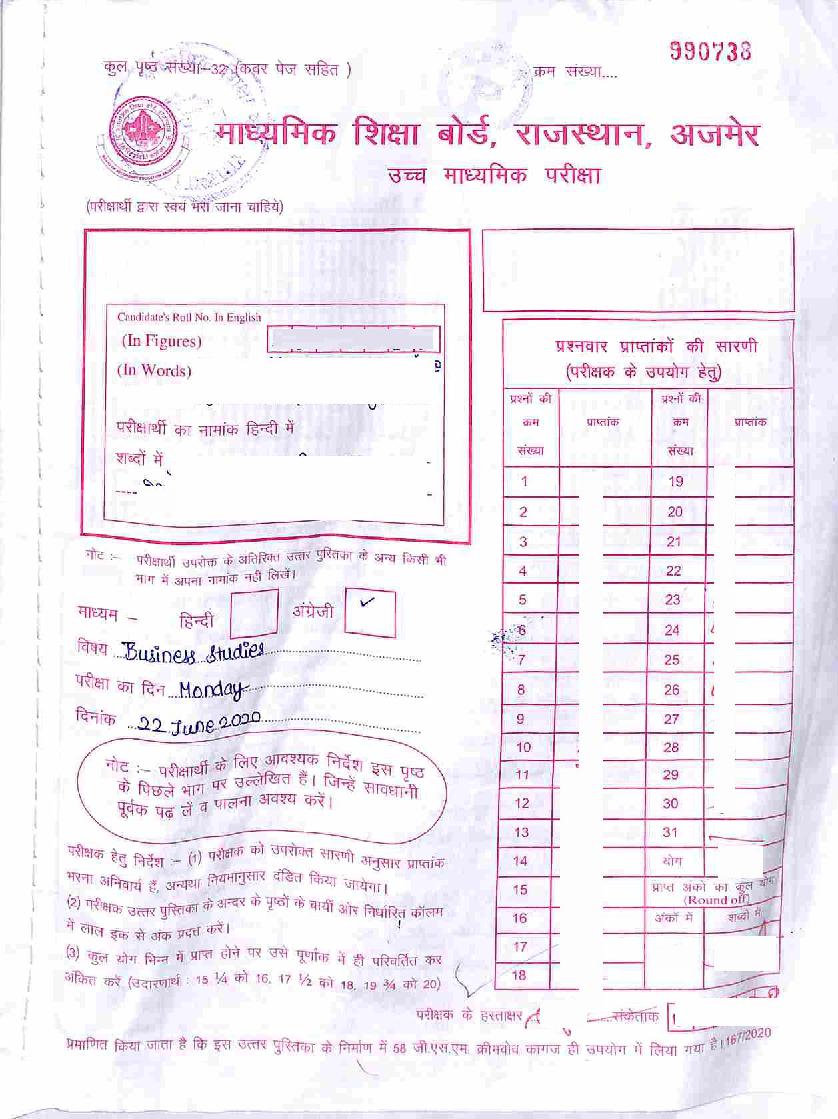 990738
कुल पृष्ठ संख्या-32 (कवर पेज सहित )
क्रम संख्या....
माध्यमिक शिक्षा बोर्ड, राजस्थान, अजमेर
उच्च माध्यमिक परीक्षा
(परीक्षार्थी द्वारा स्वयं भरा जाना चाहिये)
Candidate's Roll No. In English
(In Figures)
(In Words)
परीक्षार्थी का नामांक हिन्दी में
शब्दों में
नोट :- परीक्षार्थी उपरोक्त के अतिरिक्त उत्तर पुस्तिका के अन्य किसी भी
भाग में अपना नामांक नहीं लिखें।
माध्यम - हिन्दी अंग्रेजी ✓
विषय Business Studies
परीक्षा का दिन Monday
दिनांक 22 June 2020
नोट :- परीक्षार्थी के लिए आवश्यक निर्देश इस पृष्ठ
के पिछले भाग पर उल्लेखित हैं। जिन्हें सावधानी
पूर्वक पढ़ लें व पालना अवश्य करें।
परीक्षक हेतु निर्देश :- (1) परीक्षक को उपरोक्त सारणी अनुसार प्राप्तांक
भरना अनिवार्य हैं, अन्यथा नियमानुसार दंडित किया जायेगा।
(2) परीक्षक उत्तर पुस्तिका के अन्दर के पृष्ठों के बायीं ओर निर्धारित कॉलम
में लाल इंक से अंक प्रदत्त करें।
(3) कुल योग भिन्न में प्राप्त होने पर उसे पूर्णांक में ही परिवर्तित कर
अंकित करें (उदाहरणार्थ : 15 ¼ को 16, 17 ½ को 18, 19 ¾ को 20)
प्रश्नवार प्राप्तांकों की सारणी
(परीक्षक के उपयोग हेतु)
प्रश्नों की क्रम संख्या प्राप्तांक प्रश्नों की क्रम संख्या प्राप्तांक
1 19
2 20
3 21
4 22
5 23
6 24
7 25
8 26
9 27
10 28
11 29
12 30
13 31
14 योग
15 प्राप्त अंकों का कुल योग (Round off)
16 अंकों में शब्दों में
17
18
परीक्षक के हस्ताक्षर संकेतांक
प्रमाणित किया जाता है कि इस उत्तर पुस्तिका के निर्माण में 58 जी.एस.एम. क्रीमवोव कागज ही उपयोग में लिया गया है। 167/2020